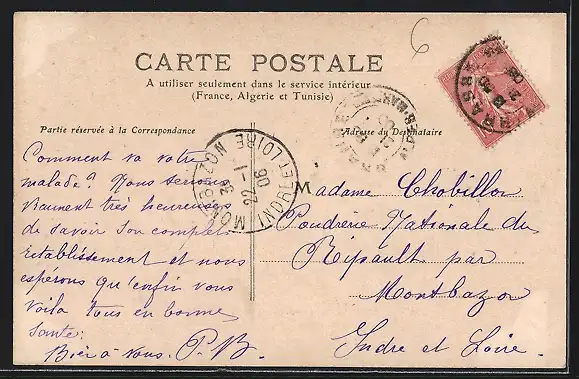 6
CARTE POSTALE
A utiliser seulement dans le service intérieur
(France, Algérie et Tunisie)
Partie réservée à la Correspondance
Adresse du Destinataire
Comment va votre
malade? Nous serions
vraiment très heureuses
de savoir son complet
rétablissement et nous
espérons qu'enfin vous
voila tous en bonne
santé:
Bien à vous. P. B.
Madame Chobillon
Poudrerie Nationale du
Ripault par
Montbazon
Indre et Loire.
MONTBAZON
INDRE ET LOIRE